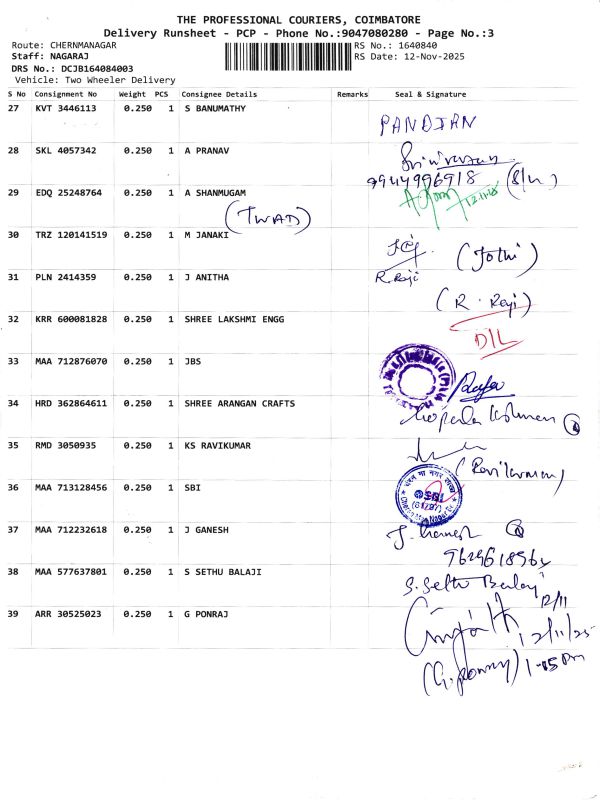 THE PROFESSIONAL COURIERS, COIMBATORE
Delivery Runsheet - PCP - Phone No.:9047080280 - Page No.:3
Route: CHERNMANAGAR RS No.: 1640840
Staff: NAGARAJ RS Date: 12-Nov-2025
DRS No.: DCJB164084003
Vehicle: Two Wheeler Delivery
S No Consignment No Weight PCS Consignee Details Remarks Seal & Signature
27 KVT 3446113 0.250 1 S BANUMATHY
PANDIAN
28 SKL 4057342 0.250 1 A PRANAV
Srinivasan
9944996918 (S/w)
29 EDQ 25248764 0.250 1 A SHANMUGAM
(TWAD)
30 TRZ 120141519 0.250 1 M JANAKI
(Jothi)
R. Raji
31 PLN 2414359 0.250 1 J ANITHA
(R. Raji)
32 KRR 600081828 0.250 1 SHREE LAKSHMI ENGG
D/L
33 MAA 712876070 0.250 1 JBS
34 HRD 362864611 0.250 1 SHREE ARANGAN CRAFTS
35 RMD 3050935 0.250 1 KS RAVIKUMAR
(Ravikumar)
36 MAA 713128456 0.250 1 SBI
SBI
37 MAA 712232618 0.250 1 J GANESH
J. Ganesh
38 MAA 577637801 0.250 1 S SETHU BALAJI
S. Sethu Balaji
12/11
39 ARR 30525023 0.250 1 G PONRAJ
12/11/25
(G. Ponraj) 1-15 pm